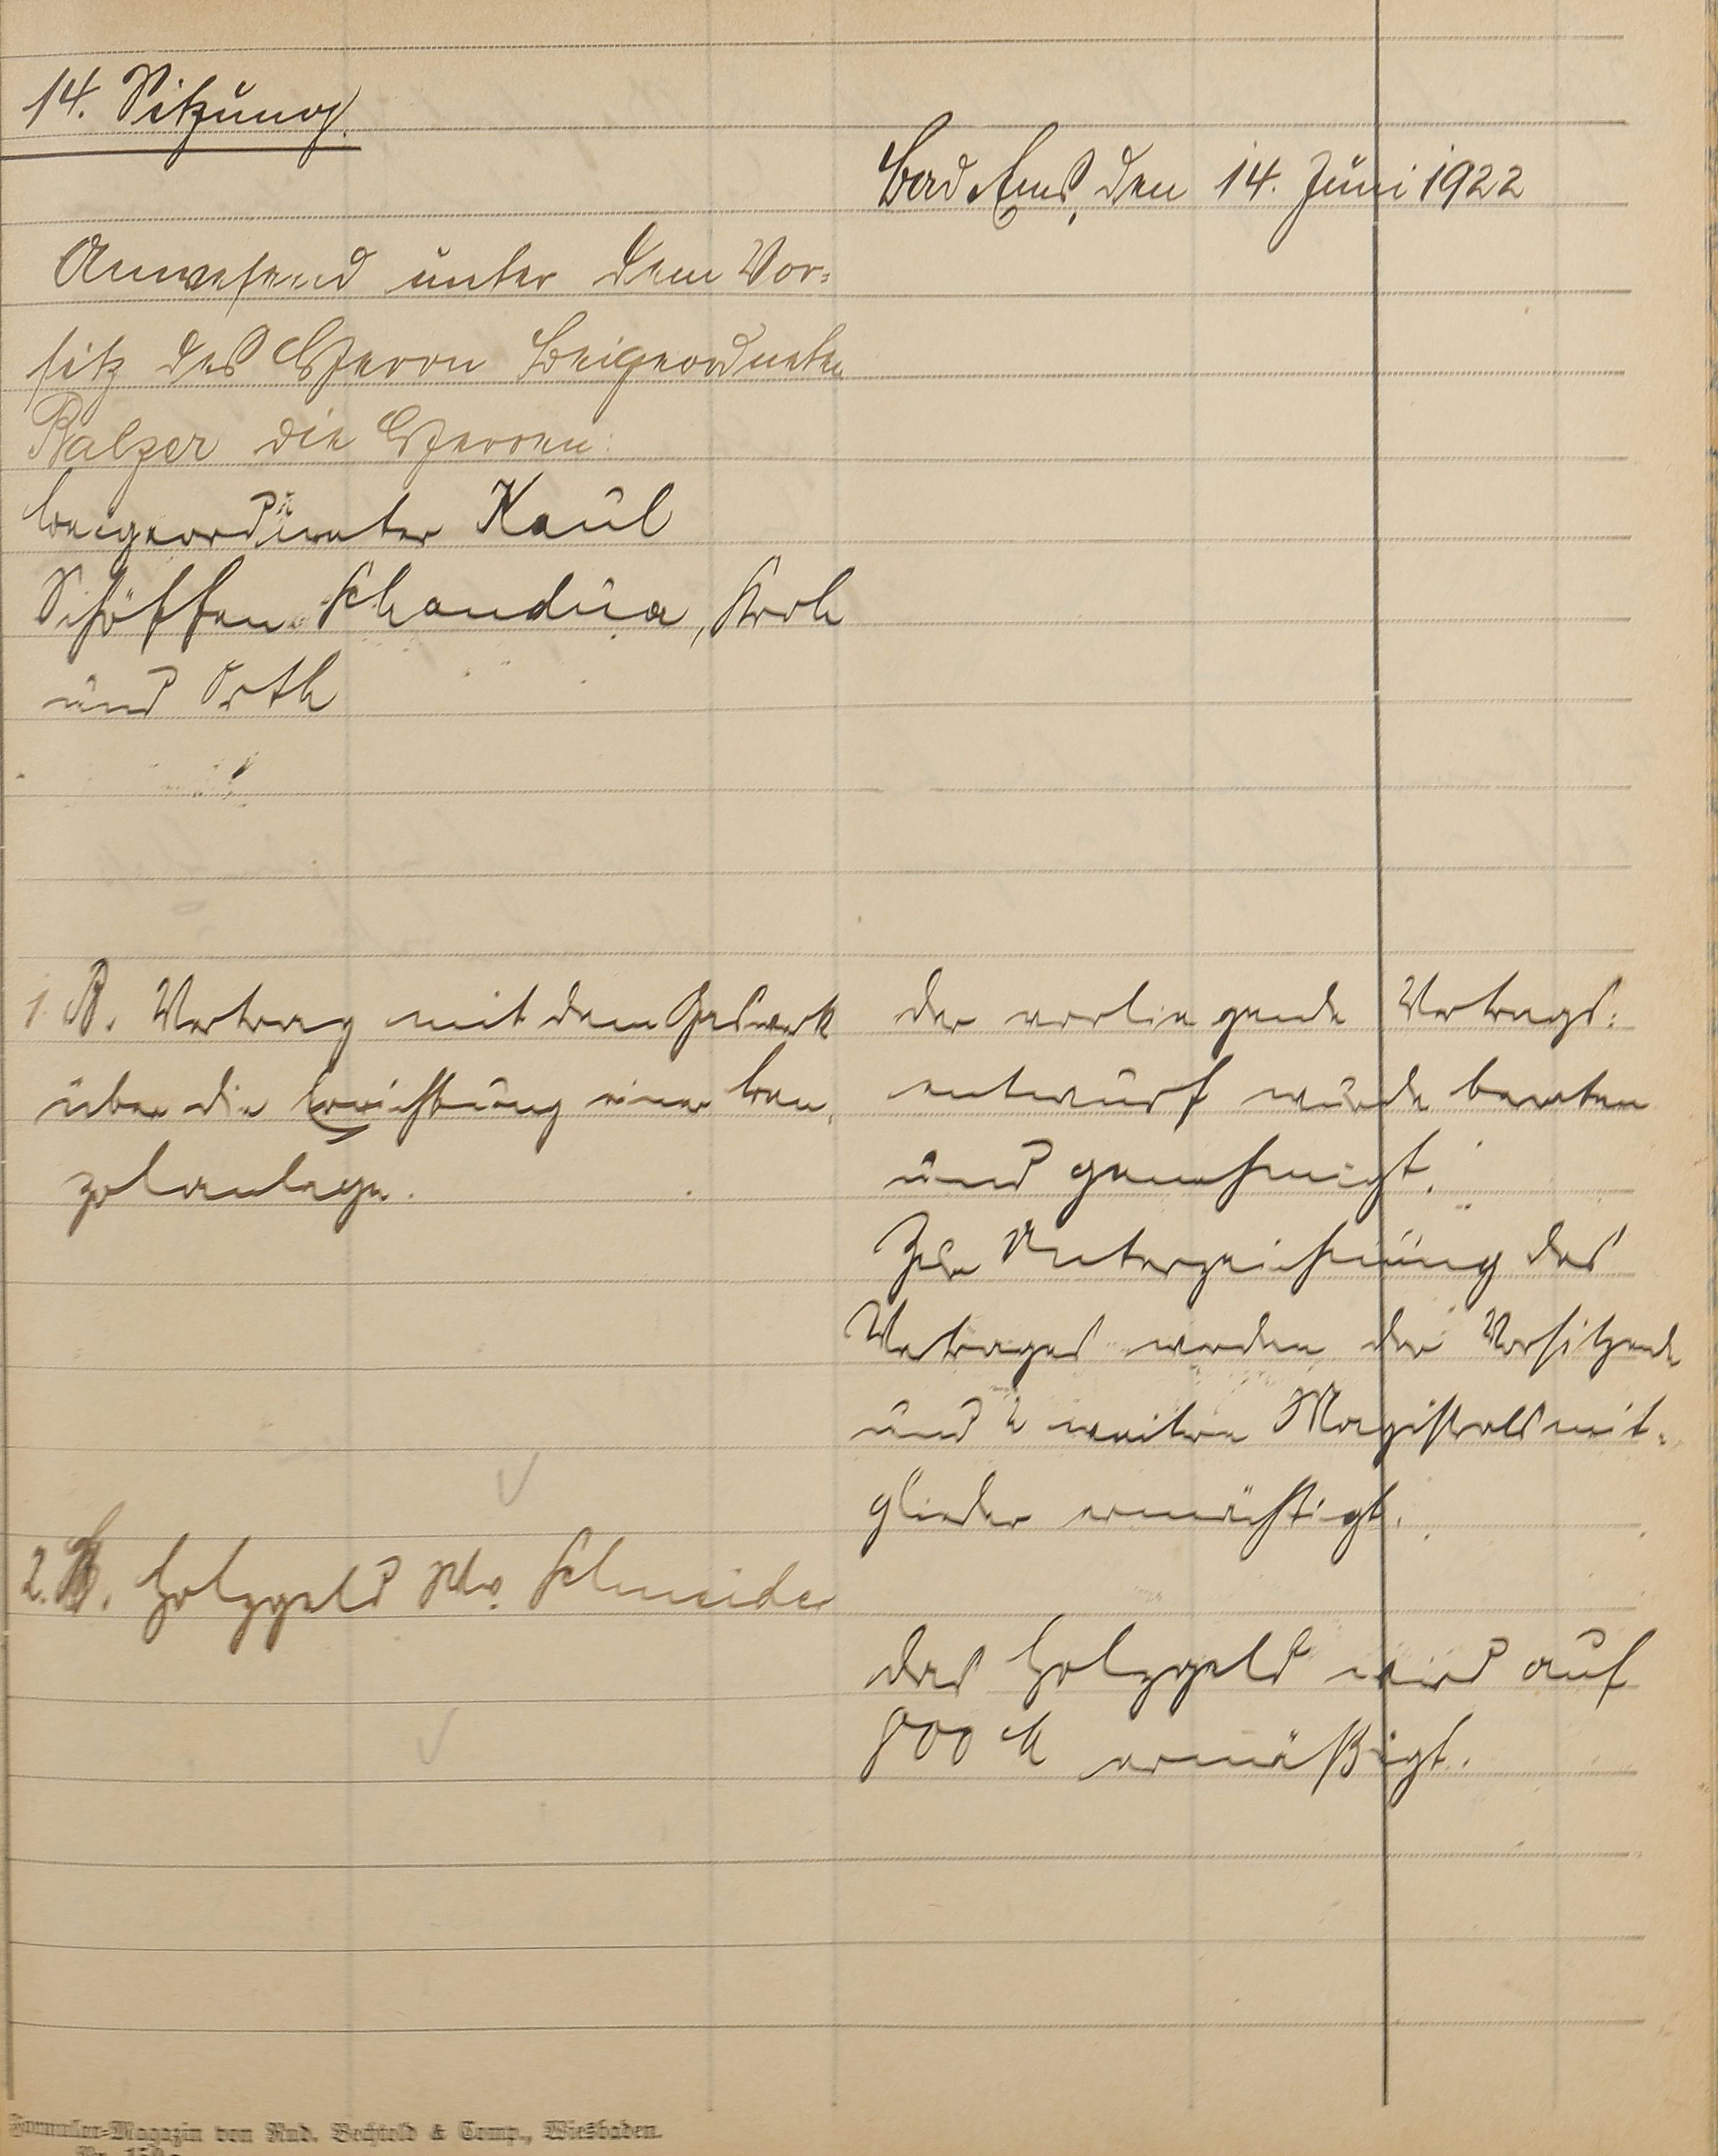 14. Sitzung.
Bad Ems, den 14. Juni 1922
Anwesend unter dem Vor-
sitz des Herrn Beigeordneten
Balzer die Herren:
Beigeordneter Kaul
Schöffen Schandua, Kroh
und Orth
1. B. Vertrag mit dem Gaswerk
über die Errichtung einer Ben-
zolanlage.
der vorliegende Vertrags-
entwurf wurde beraten
und genehmigt.
Zur Unterzeichnung des
Vertrages werden der Vorsitzende
und 2 weitere Magistratsmit-
glieder ermächtigt.
2. B. Holzgeld Schneider
das Holzgeld wird auf
800 M ermäßigt.
Formular-Magazin von Rud. Bechtold & Comp., Wiesbaden.